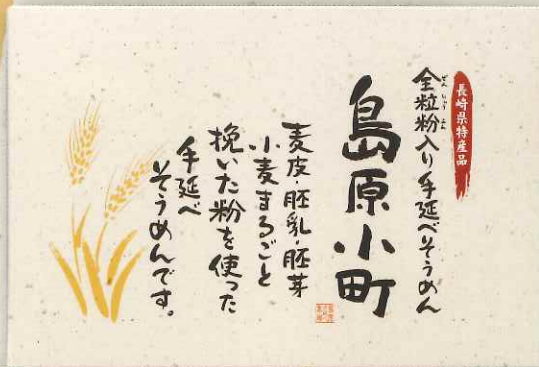 長崎県特産品
全粒粉入り手延べそうめん
ぜんりゅうふん
島原小町
麦皮・胚乳・胚芽
小麦まるごと
挽いた粉を使った
手延べ
そうめんです。